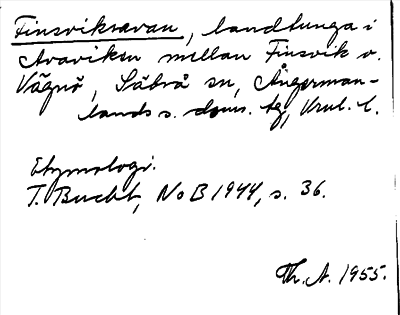 Finsviksavan, landtunga i
Avaviken mellan Finsvik o.
Vägnö, Säbrå sn, Ångerman-
lands s. doms. tg,
Etymologi.
T. Bucht, NoB 1944, s. 36.
Th. A. 1955.